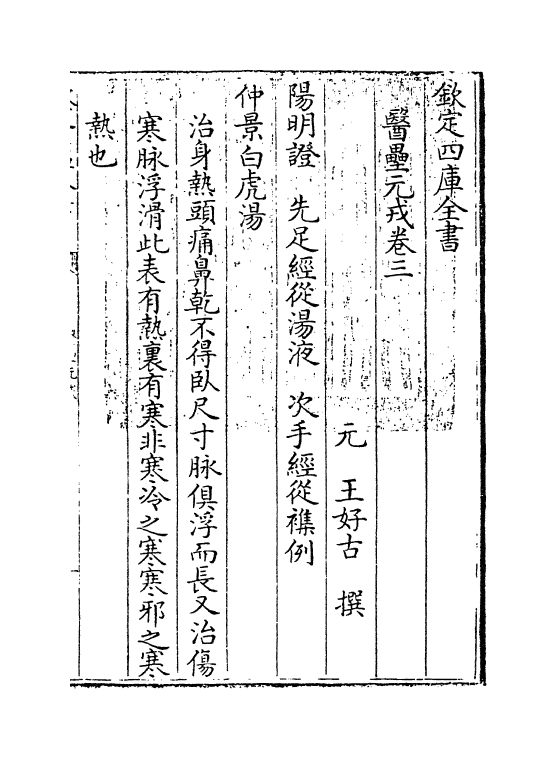 欽定四庫全書
醫壘元戎卷三
元 王好古 撰
陽明證 先足經從湯液 次手經從襍例
仲景白虎湯
治身熱頭痛鼻乾不得臥尺寸脉俱浮而長又治傷
寒脉浮滑此表有熱裏有寒非寒冷之寒寒邪之寒
熱也